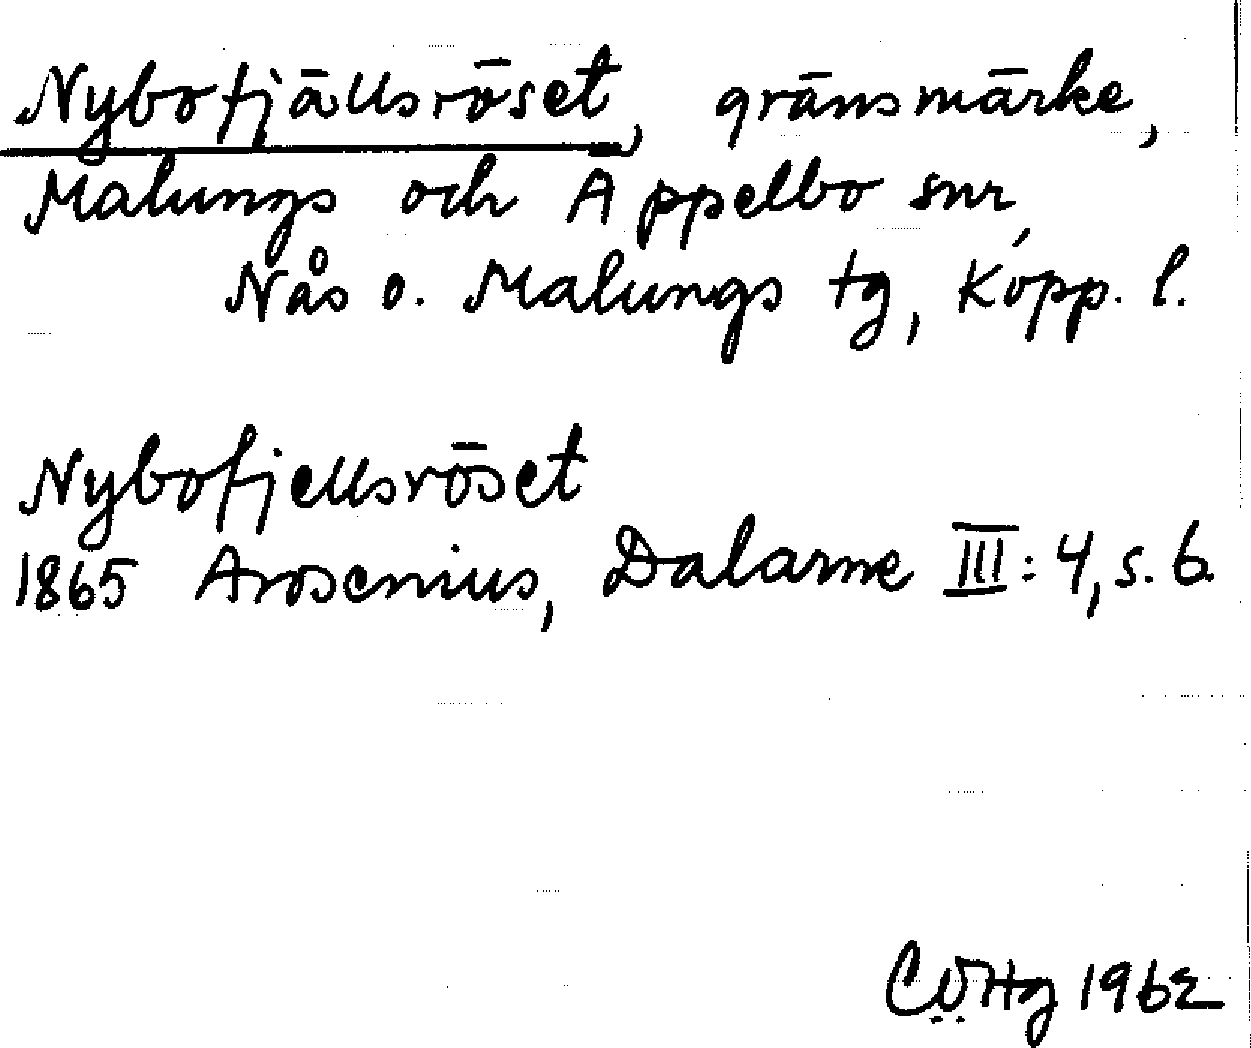 Nybofjällsröset, gränsmärke,
Malungs och Äppelbo snr,
Nås o. Malungs tg, Kopp. l.
Nybofjellsröset
1865 Arosenius, Dalarne III: 4, s. 6.
1962